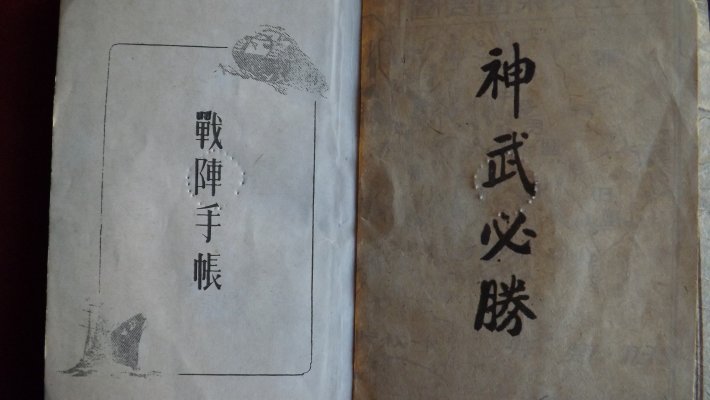 戰陣手帳
神武必勝